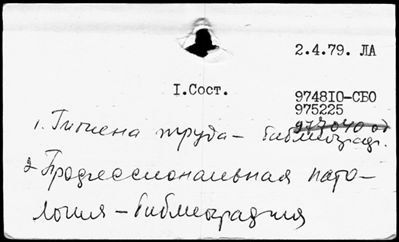 2.4.79. ЛА
I.Сост.
974810-СБО
975225
977040 од
1. Гигиена труда – библиограф.
2 Профессиональная пато-
логия – библиография